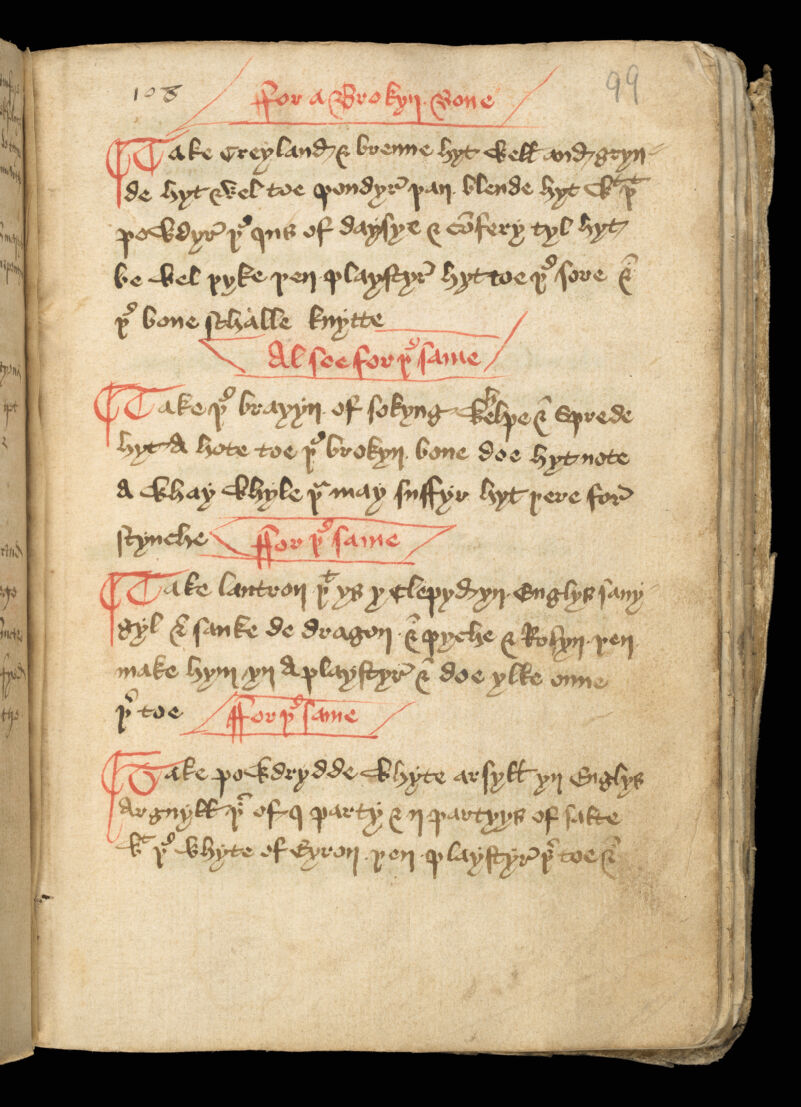 108 99
ffor a Brokyn Bone
Take Greyland & brenne hyt Well and gryn-
de hyt Wel toe pondyr þan blende hyt Wt þt
poWdyr þe jus of daysye & cōfery tyl hyt
be Wel þyke þen playstyr hyt toe þe sore &
þe bone schalle knytte
Al soe for þe same
Take þe brayyn of sokyng Whelpe & Sprede
hyt A hote toe þe brokyn bone doe hyt note
A Whay Whyle þu may suffyr hyt þere for
stynche ffor þe same
Take lantron þt ys y clepyd yn Englys sany-
gyl & sanke de dragon & pyche & Rosyn þen
make hym yn A playstyr & doe ylke onne
þr toe ffor þe same
Take poWdrydde Whyte arsyll yn Englys
Argnyll þr of j party & ij partyys of salte
Wt þe Whyte of Eyron þen playstyr þr toe &